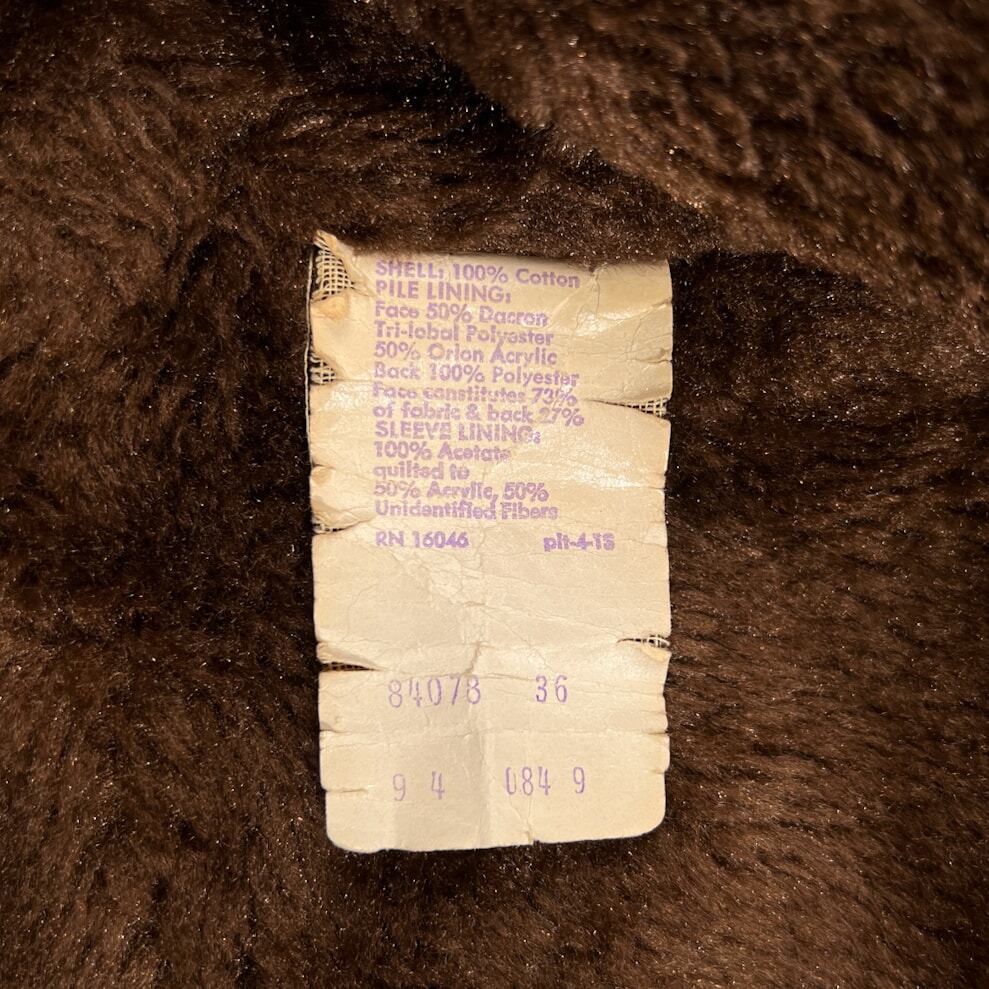 SHELL: 100% Cotton
PILE LINING:
Face 50% Dacron
Tri-lobal Polyester
50% Orlon Acrylic
Back 100% Polyester
Face constitutes 73%
of fabric & back 27%
SLEEVE LINING:
100% Acetate
quilted to
50% Acrylic, 50%
Unidentified Fibers
RN 16046 plt-4-15
84073 36
9 4 084 9